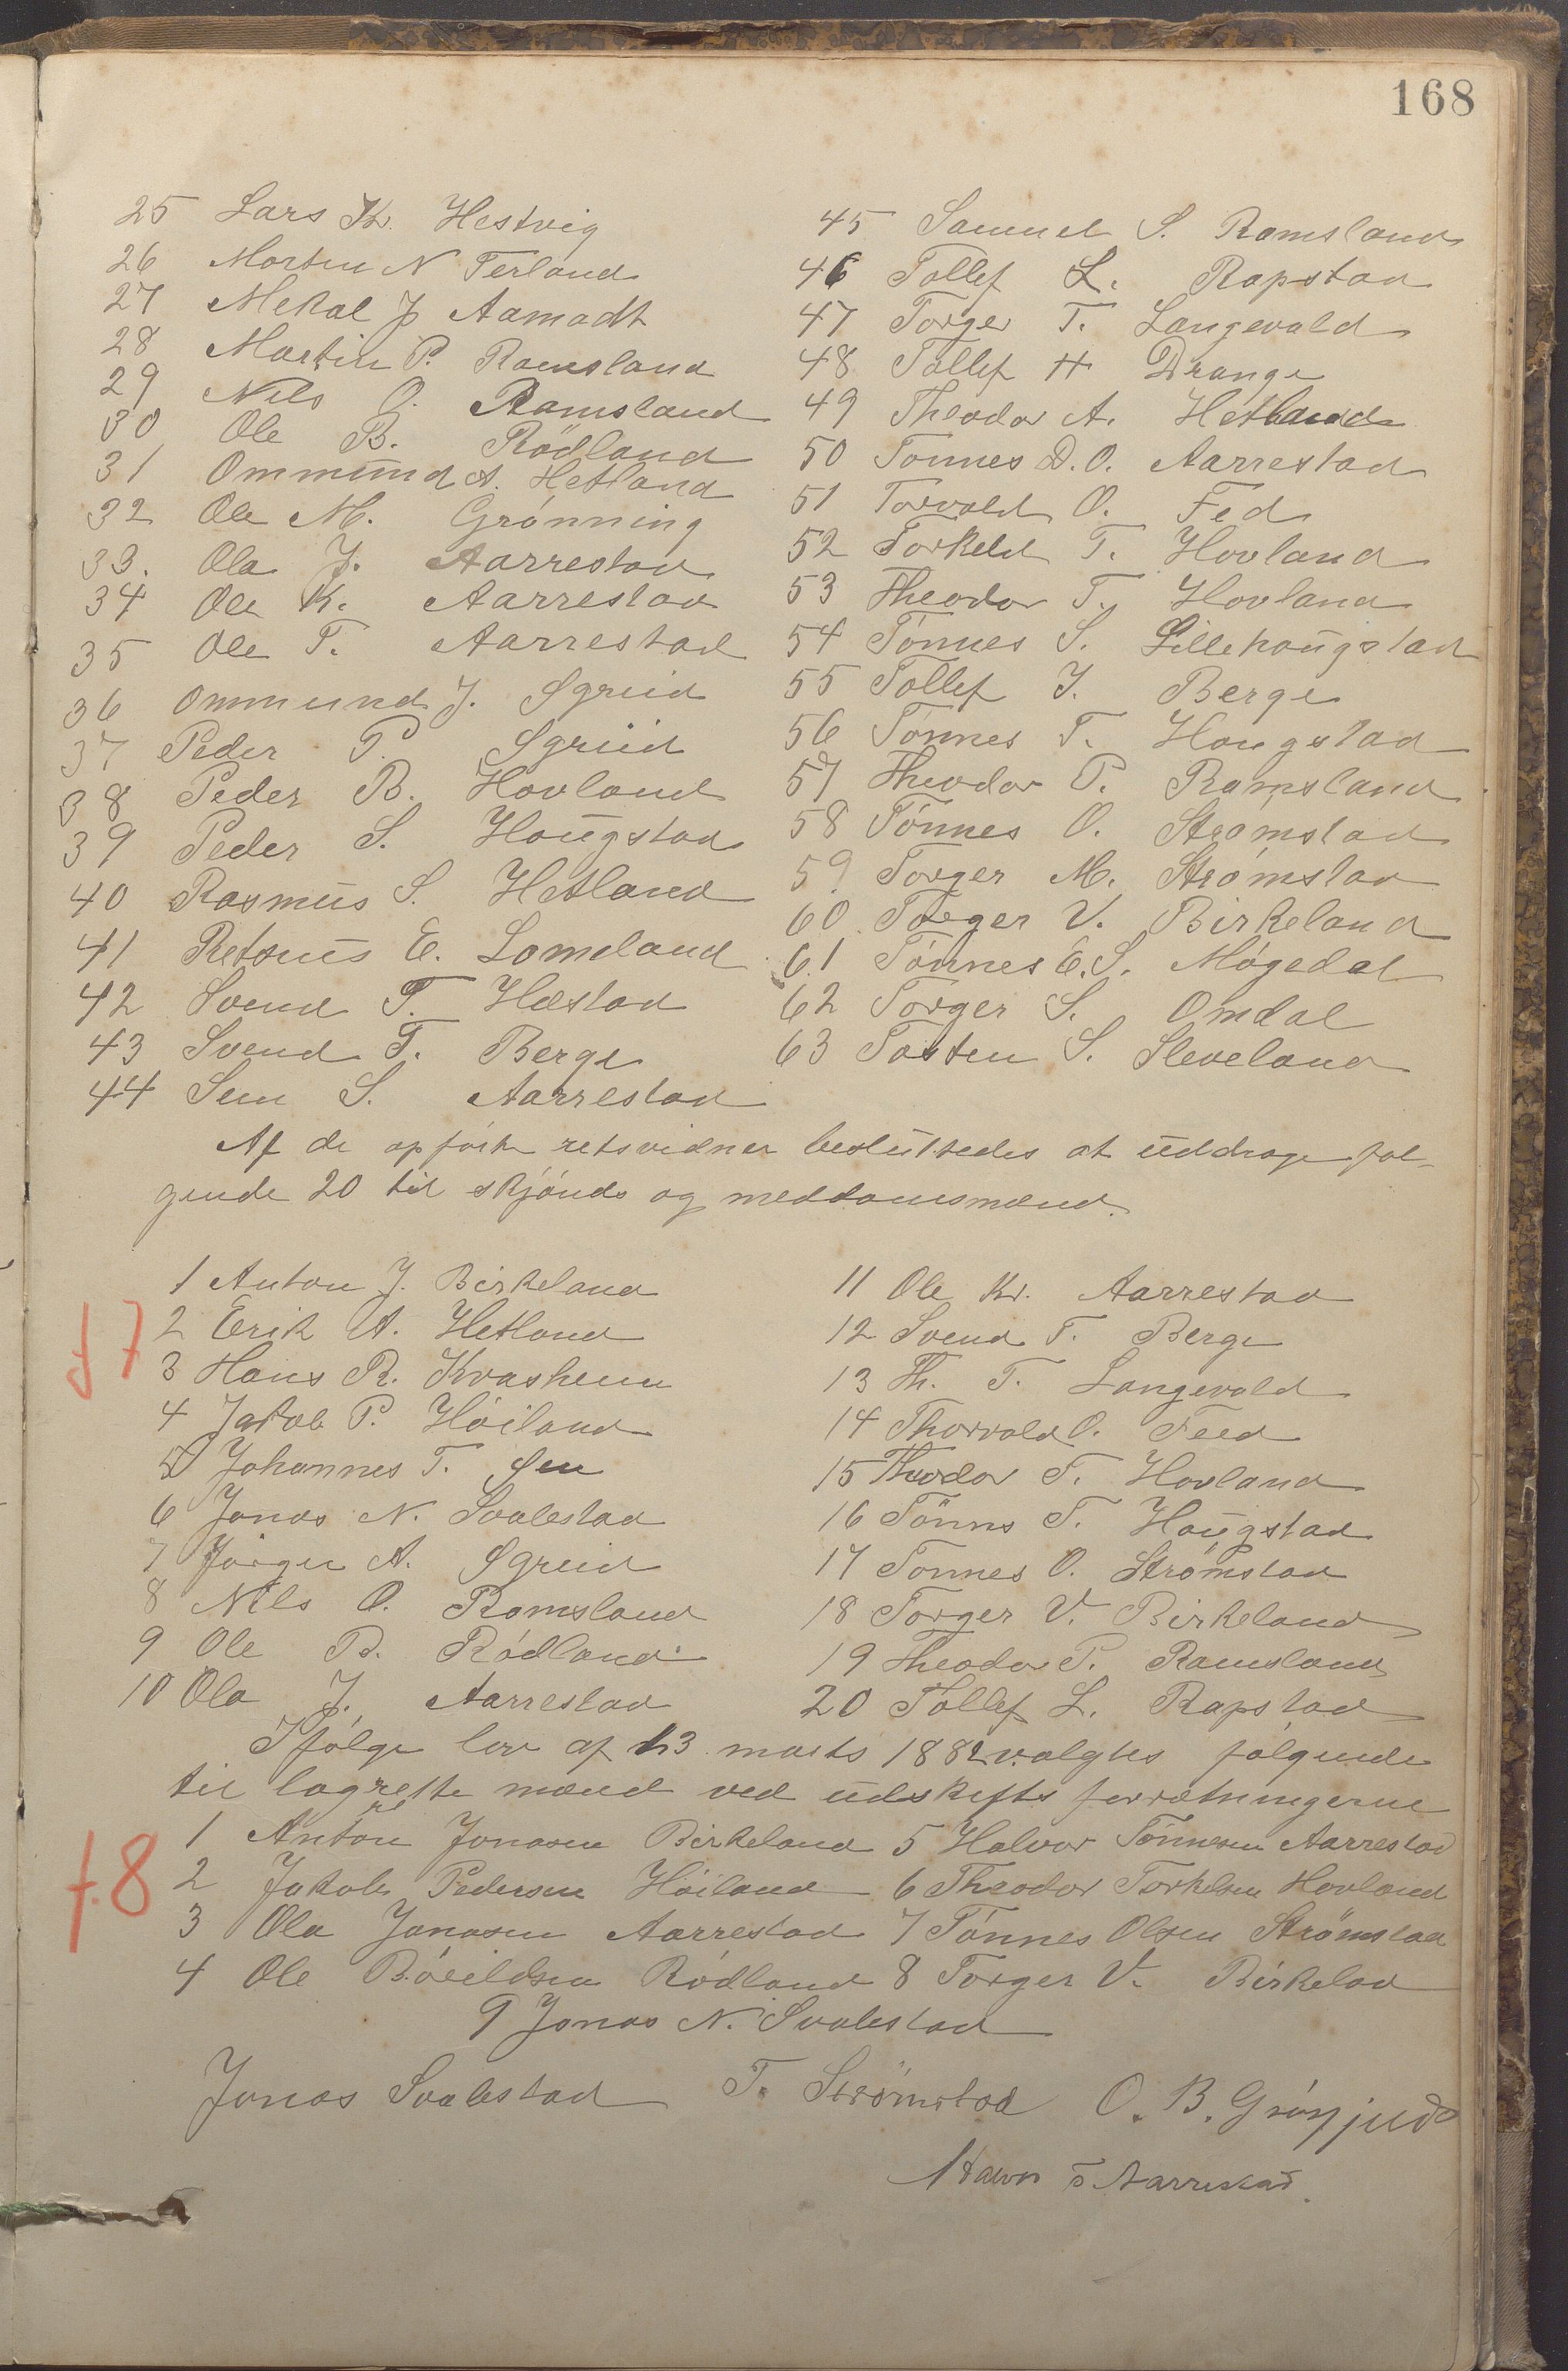 168
25 Lars Kr. Hestvig
26 Morten N Terland
27 Mekal J Aamodt
28 Martin P. Ramsland
29 Nils O. Ramsland
30 Ole B. Rødland
31 Ommund A. Hetland
32 Ole M. Grønning
33. Ola J. Aarrestad
34 Ole K. Aarrestad
35 Ole T. Aarrestad
36 Ommund J. Øgreid
37 Peder P. Øgreid
38 Peder B. Hovland
39 Peder S. Hougstad
40 Rasmus S. Hetland
41 E. Lomeland
42 Svend T. Hæstad
43 Svend T. Berge
44 Sem S. Aarrestad
45 Samuel S. Ramsland
46 Tollef L. Rapstad
47 Torger T. Langevald
48 Tollef H Drange
49 Theodor A. Hetland
50 Tønnes D. O. Aarrestad
51 Torvald O. Fed
52 Torkeld T. Hovland
53 Theodor T. Hovland
54 Tønnes S. Lillehougstad
55 Tollef J. Berge
56 Tønnes T. Hougstad
57 Theodor P. Ramsland
58 Tønnes O. Strømstad
59 Torger M. Strømstad
60 Torger V. Birkeland
61 Tønnes E. S. Møgedal
62 Torger S. Omdal
63 Tosten S. Sleveland
Af de opførte retsvidner besluttedes at uddrage føl-
gende 20 til skjønds og meddomsmænd.
1 Anton J. Birkeland
2 Erik A. Hetland
3 Hans R. Kvasheim
4 Jakob P. Høiland
5 Johannes T. Øen
6 Jonas N. Svalestad
7 Jørgen A. Øgreid
8 Nils O. Ramsland
9 Ole B. Rødland
10 Ola J. Aarrestad
11 Ole Kr. Aarrestad
12 Svend T. Berge
13 Th. T. Langevald
14 Thorvald O. Feed
15 Theodor T. Hovland
16 Tønns T. Hougstad
17 Tønnes O. Strømstad
18 Torger V. Birkeland
19 Theodor P. Ramsland
20 Tollef L. Rapstad
Ifølge lov af 13 marts 1882 valgtes følgende
til lagrette mænd ved udskifts forrætningerne
1 Anton Jonasen Birkeland 5 Halvor Tønnesen Aarrestad
2 Jakob Pedersen Høiland 6 Theodor Torkelsen Hovland
3 Ola Jonasen Aarrestad 7 Tønnes Olsen Strømstad
4 Ole Rødland 8 Torger V. Birkelad
9 Jonas N. Svalestad
f 8
Jonas Svalestad T. Strømstad O. B.
Halvor T Aarrestad.